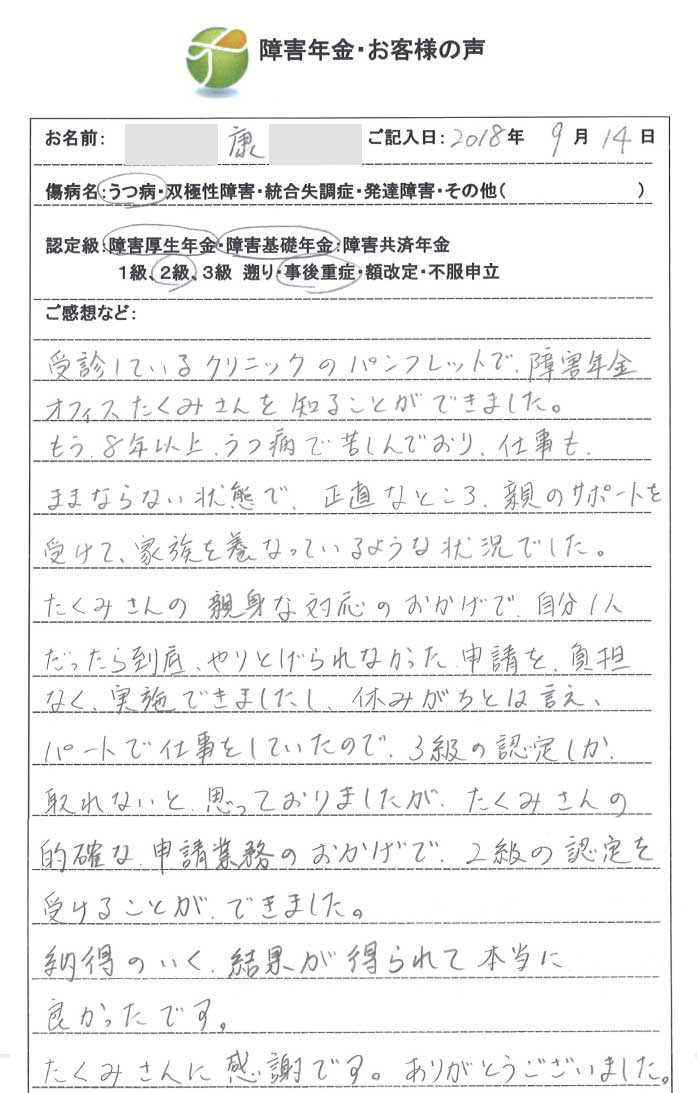 障害年金・お客様の声
お名前: 康 ご記入日: 2018年 9月 14日
傷病名:うつ病・双極性障害・統合失調症・発達障害・その他( )
認定級:障害厚生年金・障害基礎年金・障害共済年金
1級、2級、3級 遡り・事後重症・額改定・不服申立
ご感想など:
受診しているクリニックのパンフレットで、障害年金
オフィスたくみさんを知ることができました。
もう、8年以上、うつ病で苦しんでおり、仕事も、
ままならない状態で、正直なところ、親のサポートを
受けて、家族を養なっているような状況でした。
たくみさんの親身な対応のおかげで、自分1人
だったら到底、やりとげられなかった、申請を、負担
なく、実施できましたし、休みがちとは言え、
パートで仕事をしていたので、3級の認定しか、
取れないと、思っておりましたが、たくみさんの
的確な、申請業務のおかげで、2級の認定を
受けることが、できました。
納得のいく、結果が得られて本当に
良かったです。
たくみさんに感謝です。ありがとうございました。